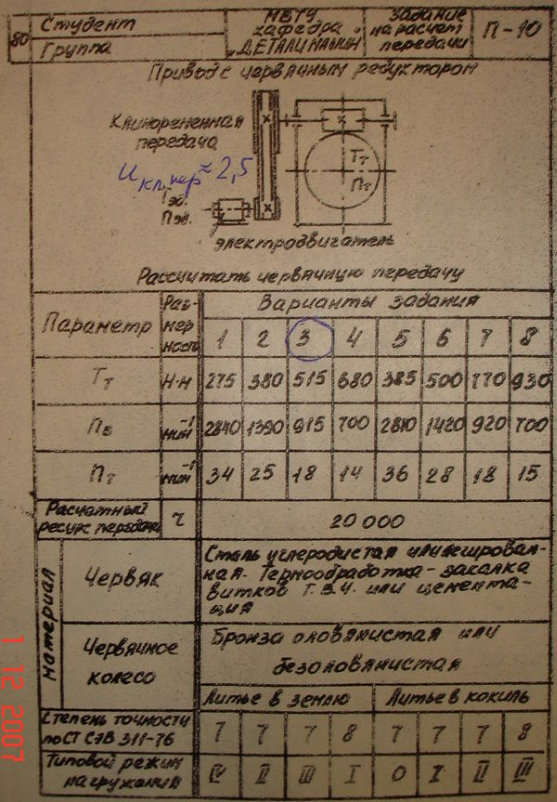 80
Студент
Группа
МВТУ
кафедра
„ДЕТАЛИ МАШИН"
Задание
на расчет
передачи
П-10
Привод с червячным редуктором
Клиноременная
передача
u кл.пер ≈ 2,5
Tэд.
Пэд.
Tт
Пт
электродвигатель
Рассчитать червячную передачу
Параметр
Раз-
мер
ность
Варианты задания
1 2 3 4 5 6 7 8
Тт Н·м 275 380 515 680 385 500 770 930
Пв мин⁻¹ 2840 1390 915 700 2810 1420 920 700
Пт мин⁻¹ 34 25 18 14 36 28 18 15
Расчетный
ресурс передачи
ч
20 000
материал
Червяк
Сталь углеродистая или легирован-
ная. Термообработка - закалка
витков Т.В.Ч. или цемента-
ция
Червячное
колесо
Бронза оловянистая или
безоловянистая
Литье в землю Литье в кокиль
Степень точности
по СТ СЭВ 311-76
7 7 7 8 7 7 7 8
Типовой режим
нагружения
IV II III I 0 I II III
1 12 2007